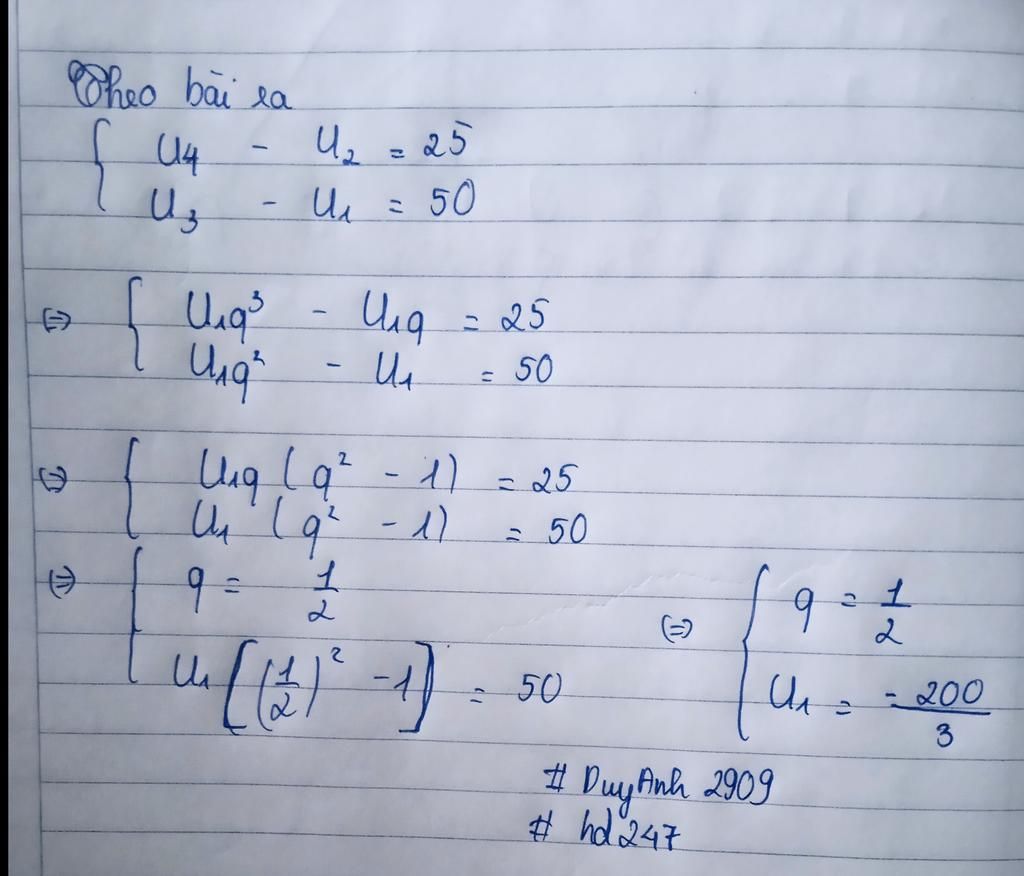 Theo bài ra
{ U4 - U2 = 25
U3 - U1 = 50
⇔ { U1q³ - U1q = 25
U1q² - U1 = 50
⇔ { U1q (q² - 1) = 25
U1 (q² - 1) = 50
⇔ { q = 1/2
U1 [(1/2)² - 1] = 50
⇔ { q = 1/2
U1 = -200/3
# DuyAnh 2909
# hd247